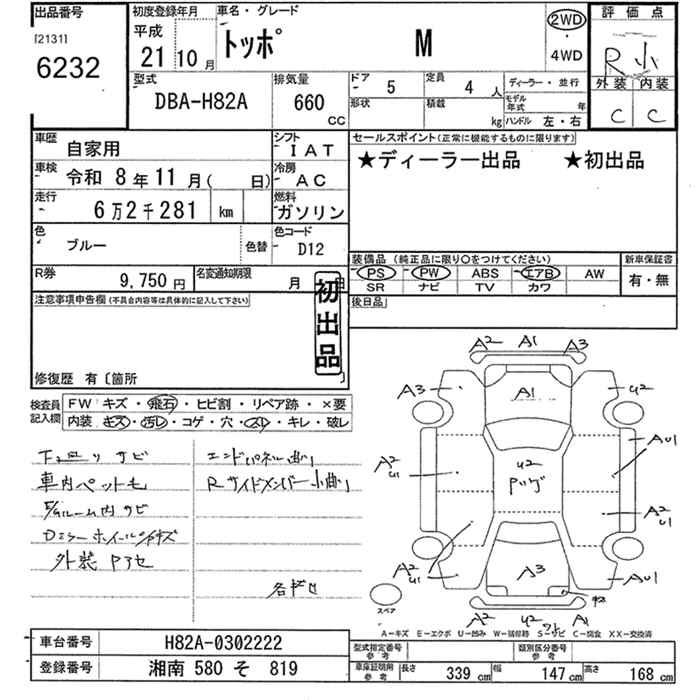 出品番号 初度登録年月 車名・グレード 評価点
[2131] 平成 トッポ M 2WD R小
6232 21年10月 4WD 外装 内装
型式 排気量 ドア 5 定員 4人 ディーラー・並行 C C
DBA-H82A 660cc 形状 積載 kg モデル年式 年 ハンドル 左・右
車歴 自家用 シフト IAT セールスポイント(正常に機能するものに限ります)
車検 令和 8年11月( 日) 冷房 AC ★ディーラー出品 ★初出品
走行 6万2千281 km 燃料 ガソリン
色 ブルー 色替 色コード D12 装備品 (純正品に限り○をつけてください) 新車保証書
R券 9,750円 名変通知期限 月 日 PS PW ABS エアB AW 有・無
SR ナビ TV カワ
注意事項申告欄(不具合内容等は具体的に記入して下さい) 初出品 後日品
修復歴 有〔箇所 〕
検査員記入欄 FW キズ・飛石・ヒビ割・リペア跡・×要
内装 キズ・汚レ・コゲ・穴・スレ・キレ・破レ
下廻りサビ エンドパネル曲り
車内ペット毛 Rサイドメンバー小曲り
ルーム内サビ
ホイールキズ
外装
A2 A1 A3
A3 A1 U2
A2 U1 U2 AU1
A2 U1
A2 U1 A3 AU1
A2 U2 A1
スペア
A-キズ E-エクボ U-凹ミ W-補修跡 S-サビ C-腐食 XX-交換済
車台番号 H82A-0302222 型式指定番号 参考 類別区分番号 参考
登録番号 湘南 580 そ 819 車庫証明用 参考 長さ 339cm 幅 147cm 高さ 168cm